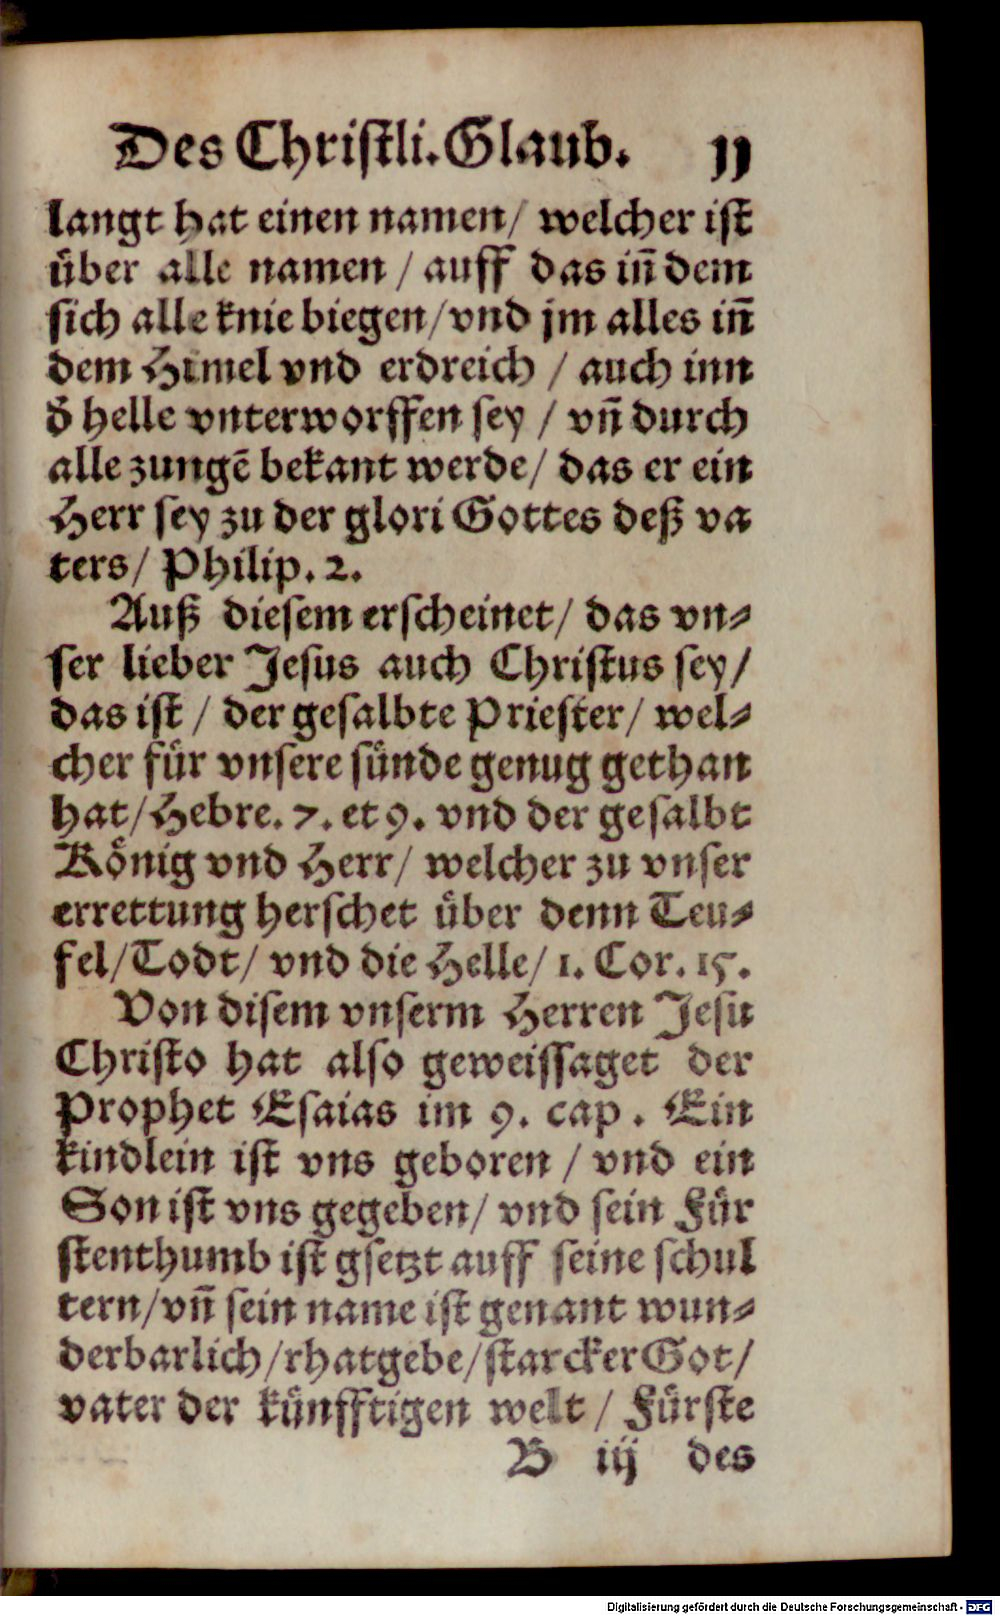 Des Christli. Glaub. 11
langt hat einen namen/ welcher ist
über alle namen / auff das in̄ dem
sich alle knie biegen/vnd jm alles in̄
dem Himel vnd erdreich / auch inn
d̄ helle vnterworffen sey / vn̄ durch
alle zungē bekant werde/ das er ein
Herr sey zu der glori Gottes deß va
ters/ Philip. 2.
Auß diesem erscheinet/ das vn⸗
ser lieber Jesus auch Christus sey/
das ist / der gesalbte Priester/ wel⸗
cher für vnsere sünde genug gethan
hat/Hebre. 7. et 9. vnd der gesalbt
König vnd Herr/ welcher zu vnser
errettung herschet über denn Teu⸗
fel/Todt/ vnd die Helle/ 1. Cor. 15.
Von disem vnserm Herren Jesu
Christo hat also geweissaget der
Prophet Esaias im 9. cap. Ein
kindlein ist vns geboren / vnd ein
Son ist vns gegeben/ vnd sein Für
stenthumb ist gsetzt auff seine schul
tern/vn̄ sein name ist genant wun⸗
derbarlich/rhatgebe/starcker Got/
vater der künfftigen welt / Fürste
B iij des
Digitalisierung gefördert durch die Deutsche Forschungsgemeinschaft - DFG